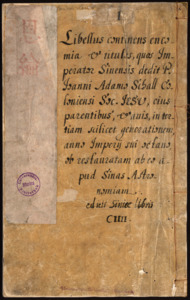 Libellus continens enco
mia & titulos, quos Im
perator Sinensis dedit P.
Ioanni Adamo Schall Co
loniensi Soc. IESV, eius
parentibus, & avis, in ter
tiam scilicet generationem,
anno Imperij sui octavo,
ob restauratam ab eo a
pud Sinas Astro
nomiam